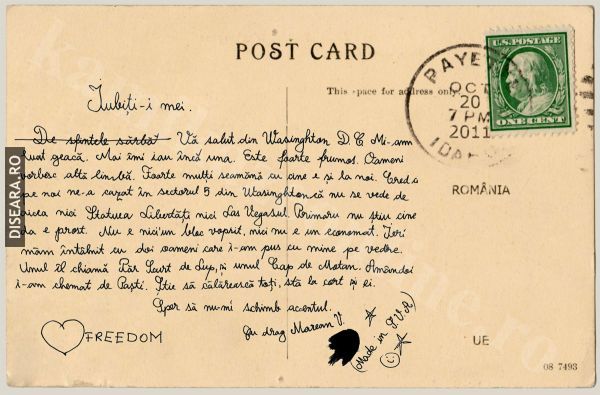 POST CARD
This space for address only.
PAYE
OCT
20
7 PM
2011
IDA
U.S. POSTAGE
ONE CENT
Iubiți-i mei.
De sfintele sărbă Vă salut din Wasinghton D.C. Mi-am
luat geacă. Mai îmi iau încă una. Este foarte frumos. Oameni
vorbesc altă limbă. Foarte mulți seamănă cu ane e și la noi. Cred
pe noi ne-a cazat în sectorul 5 din Wasinghton că nu se vede de
aicea nici Statuea Libertăți nici Las Vegasul. Primaru nu știu cine
da e prost. Nu e nici'un bloc vopsit, nici nu e un economat. Ieri
m-am întâlnit cu doi oameni care i-am pus cu mine pe vedre.
Unul îl chiamă Păr Scurt de Lup, și unul Cap de Motan. Amândoi
i-am chemat de Paști. Știe să călărească toți, stă la cort și ei.
Sper să nu-mi schimb acentul.
Cu drag Marean V.
FREEDOM
(Made in SUA)
ROMÂNIA
UE
08 7493
DISEARA.RO